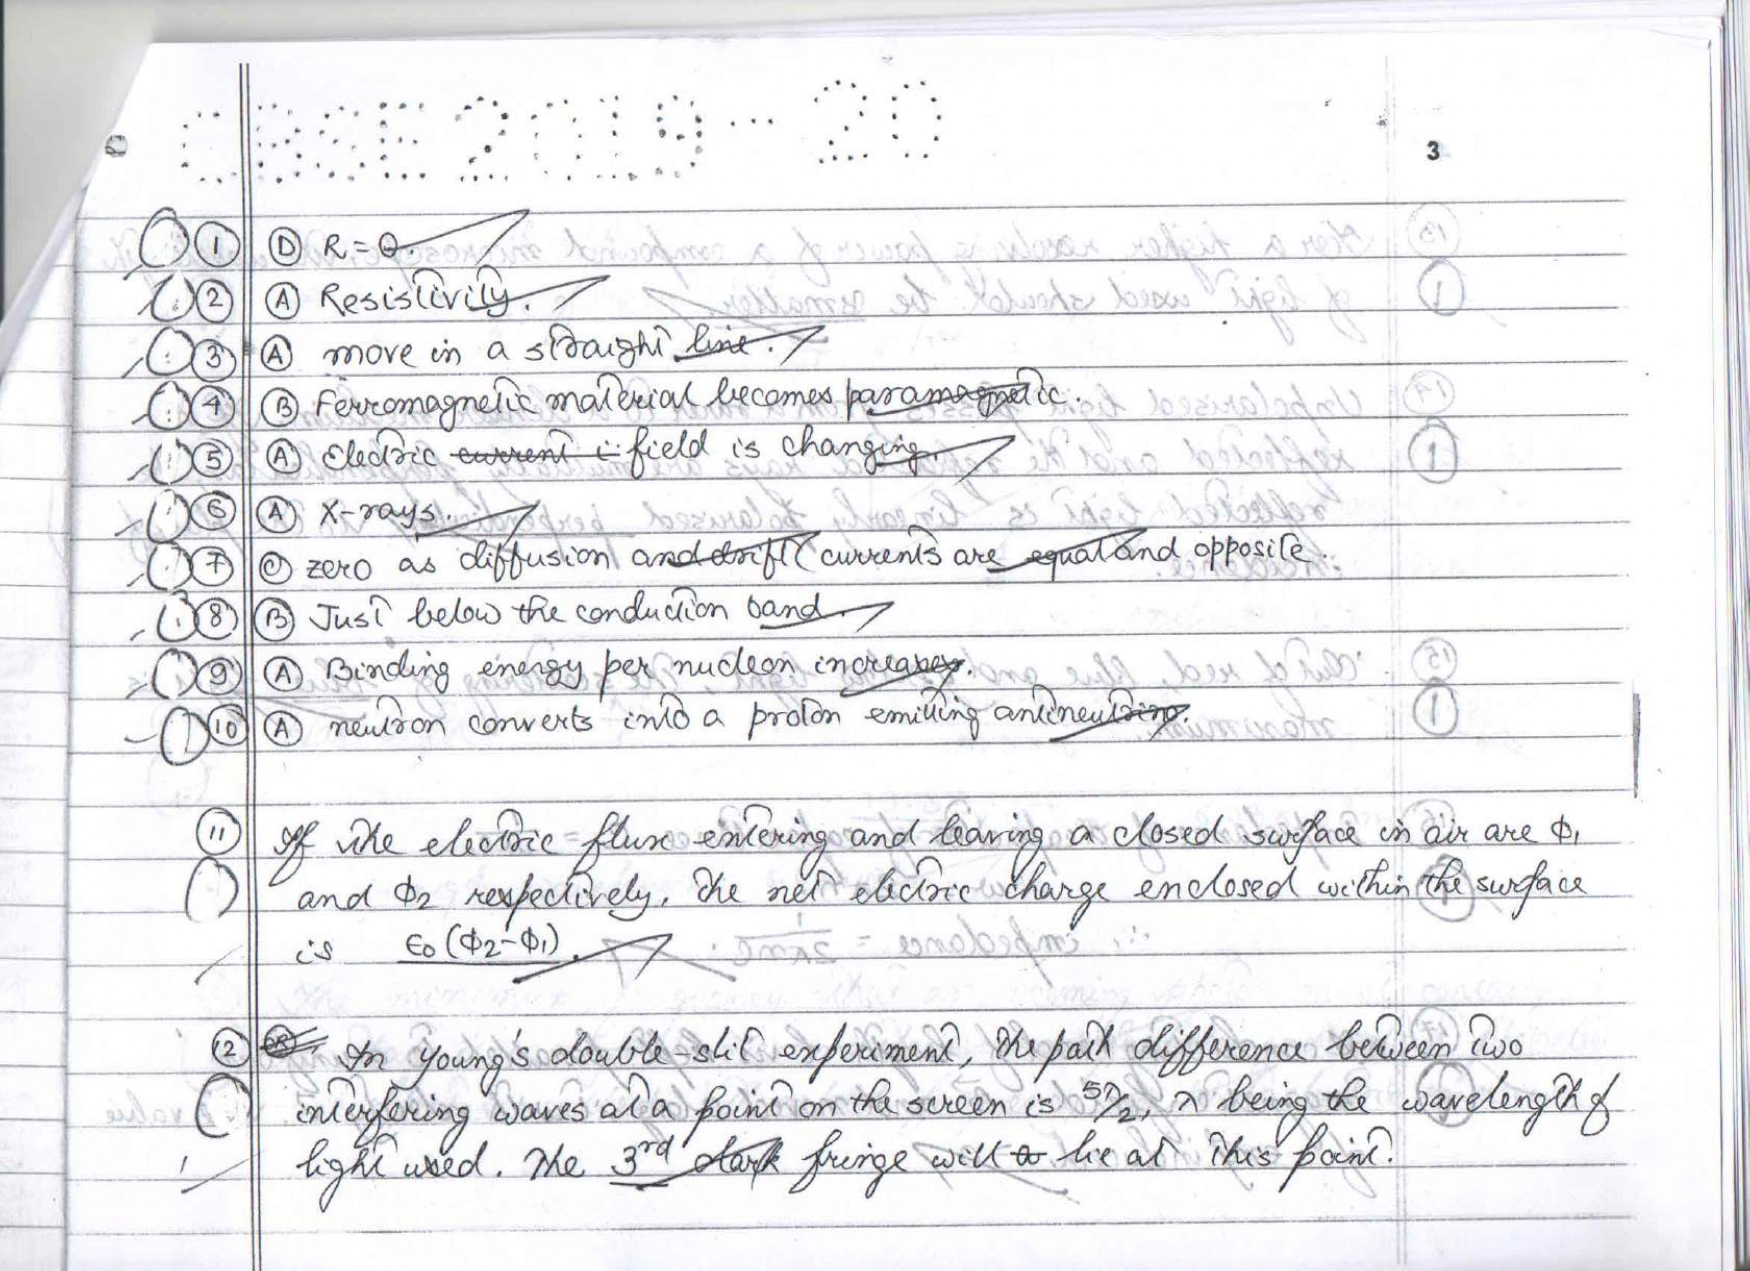 CBSE 2019-20
3
1 (D) R = 0.
2 (A) Resistivity.
3 (A) move in a straight line.
4 (B) Ferromagnetic material becomes paramagnetic.
5 (A) Electric current i field is changing.
6 (A) X-rays.
7 (C) zero as diffusion and drift currents are equal and opposite.
8 (B) Just below the conduction band.
9 (A) Binding energy per nucleon increases.
10 (A) neutron converts into a proton emitting antineutrino.
11 If the electric flux entering and leaving a closed surface in air are Φ1
and Φ2 respectively. The net electric charge enclosed within the surface
is ϵ0 (Φ2-Φ1).
12 In young's double-slit experiment, the path difference between two
interfering waves at a point on the screen is 5λ/2, λ being the wavelength of
light used. The 3rd dark fringe will lie at this point.